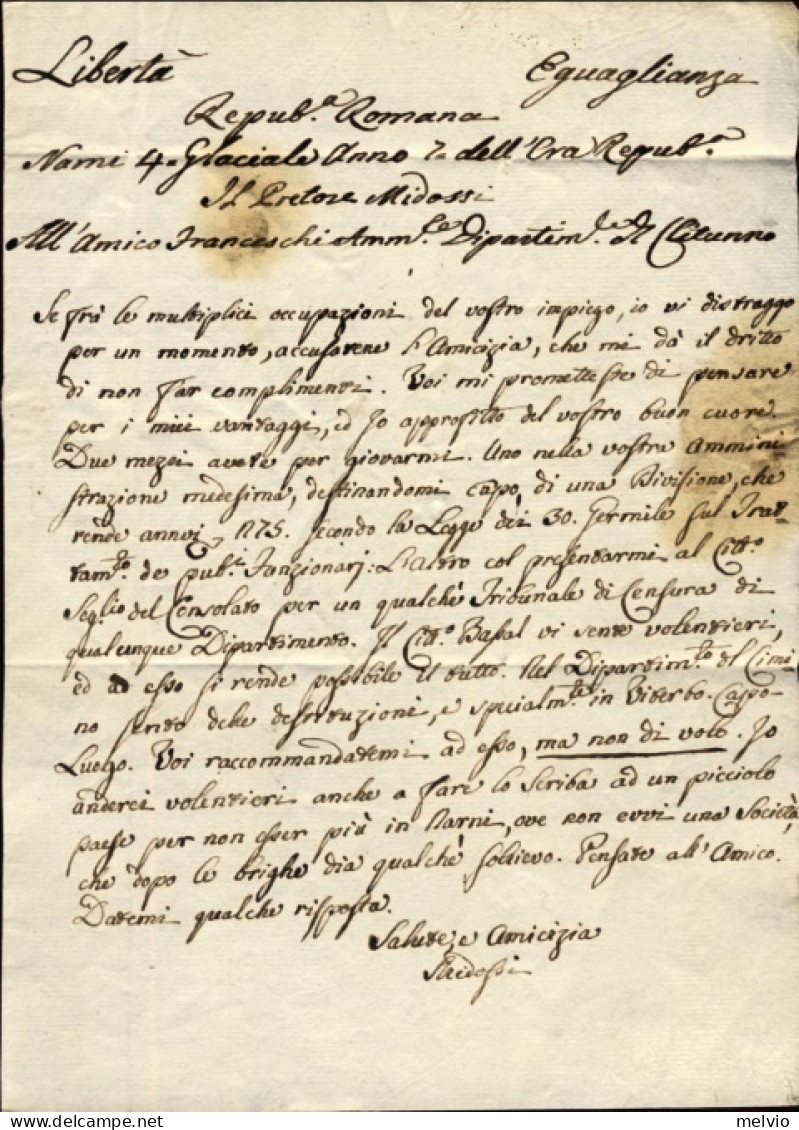 Libertà Eguaglianza
Repub.ª Romana
Narni 4. Glaciale Anno 7. dell'Era Repub.ª
Il Pretore Midossi
All'Amico Franceschi Amm.re Dipartim.le del Clitunno
Se frà le multiplici occupazioni del vostro impiego, io vi distraggo
per un momento, accusatene l'Amicizia, che mi dà il dritto
di non far complimenti. Voi mi prometteste di pensare
per i miei vantaggi, ed Io approfitto del vostro buon cuore.
Due mezzi avete per giovarmi. Uno nella vostra Ammini
strazione medesima, destinandomi Capo di una Divisione, che
rende annui 175. secondo la Legge dei 30. Germile sul Trat-
tam.to de pub.ci Funzionarj: L'altro col presentarmi al Citt.o
Seg.rio del Consolato per un qualchè Tribunale di Censura di
qualunque Dipartimento. Il Citt.o Bassal vi sente volentieri,
ed ad esso si rende possibile il tutto. Nel Dipartim.to del Cimi-
no sento delle destituzioni, e specialm.te in Viterbo. Capo-
Luogo. Voi raccommandatemi ad esso, ma non di volo. Io
anderei volentieri anche a fare lo Scriba ad un picciolo
paese per non esser più in Narni, ove non evvi una Società,
che dopo le brighe dia qualchè sollievo. Pensate all'Amico.
Datemi qualche risposta.
Salute, e Amicizia
Midossi
delcampe.net
melvio